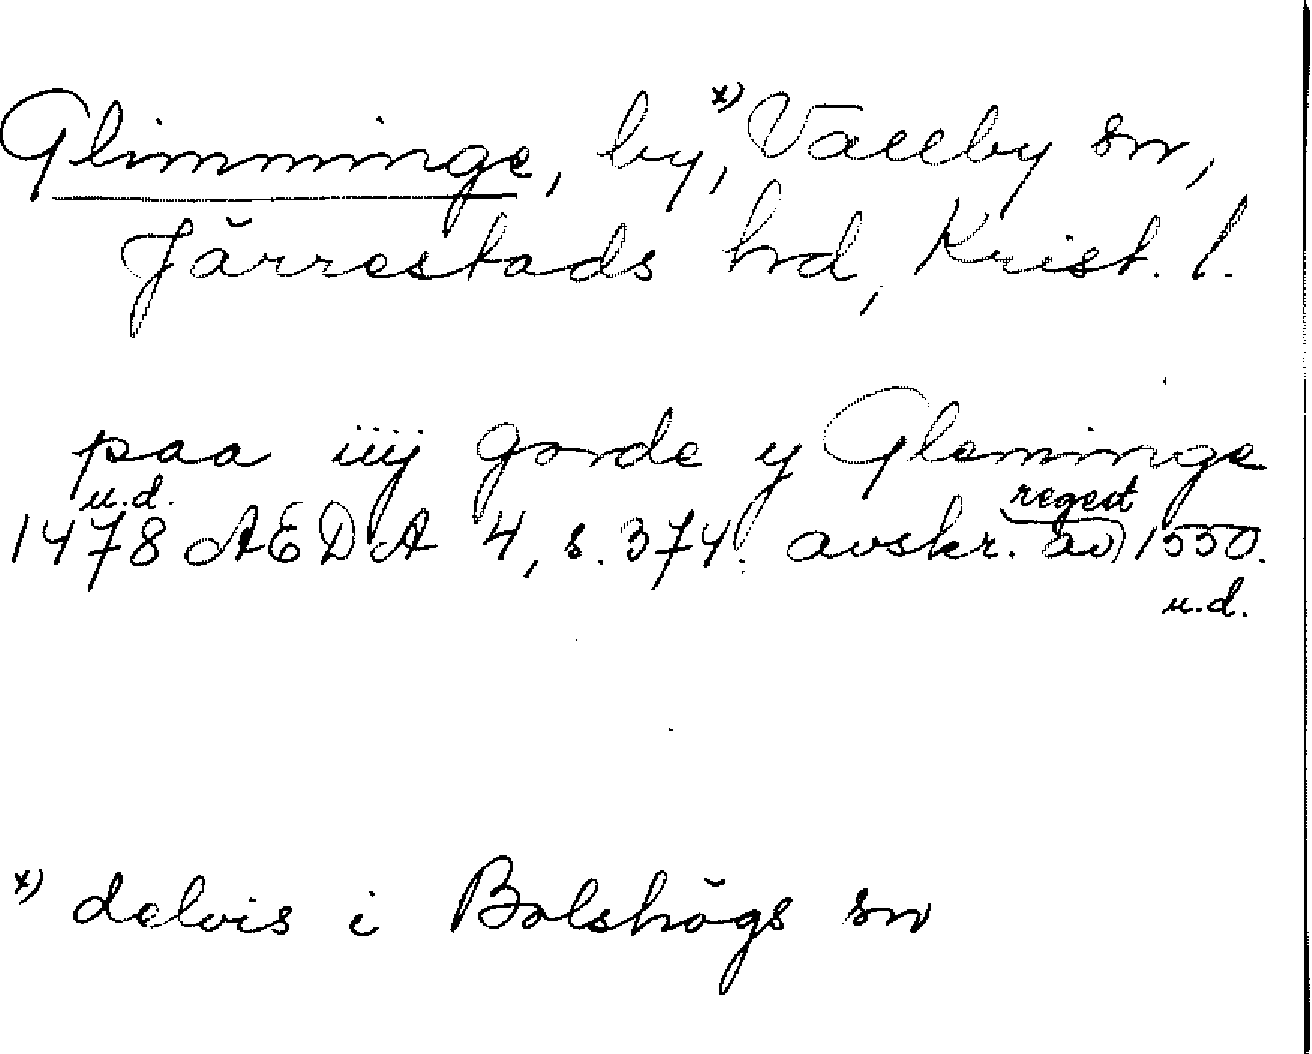 Glimminge, by, x) Vallby sn,
Järrestads hd, Krist. l.
paa iiij gorde y Gleminge
u.d. regest
1478 AEDA 4, s. 374. avskr. av 1550.
u.d.
x) delvis i Bolshögs sn